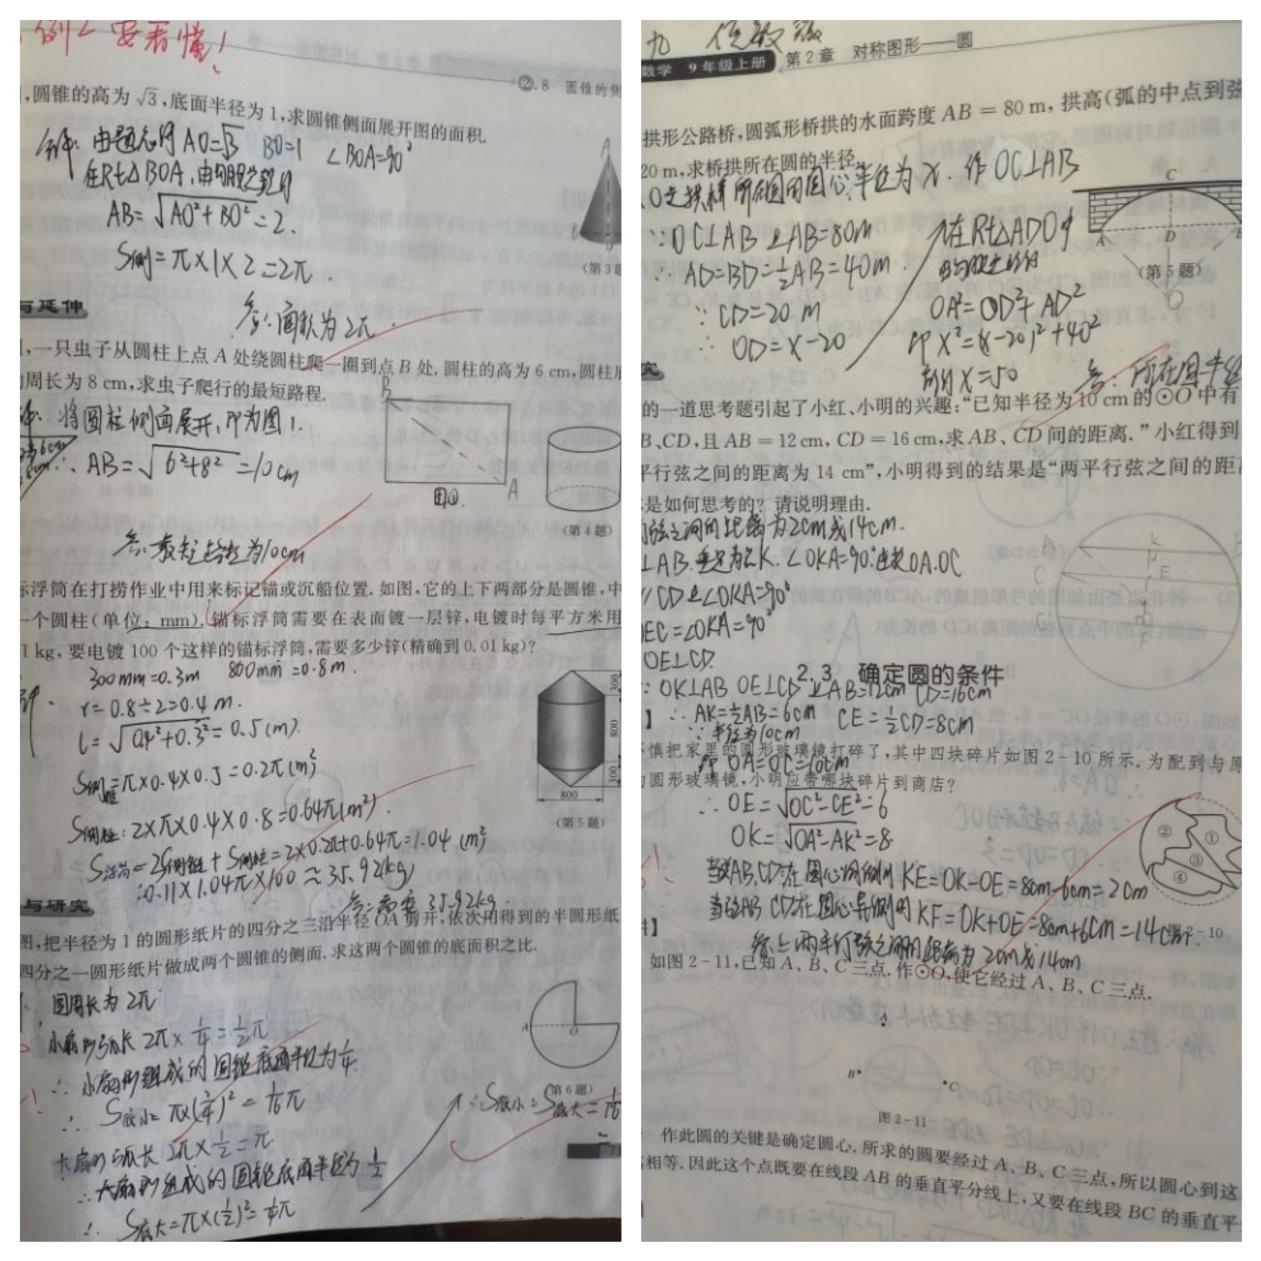 例2要看懂!
2.8 圆锥的侧
,圆锥的高为√3,底面半径为1,求圆锥侧面展开图的面积.
解:由题意得AO=√3 BO=1 ∠BOA=90°
在Rt△BOA,由勾股定理得
AB=√AO²+BO²=2.
S侧=π×1×2=2π.
答:面积为2π.
A
B
(第3题
与延伸
,一只虫子从圆柱上点A处绕圆柱爬一圈到点B处.圆柱的高为6 cm,圆柱底
周长为8 cm,求虫子爬行的最短路程.
将圆柱侧面展开,即为图1.
∴AB=√6²+8²=10cm
答:最短路程为10cm
B
A
图①.
(第4题)
标浮筒在打捞作业中用来标记锚或沉船位置.如图,它的上下两部分是圆锥,中
一个圆柱(单位:mm).锚标浮筒需要在表面镀一层锌,电镀时每平方米用
1 kg,要电镀100个这样的锚标浮筒,需要多少锌(精确到0.01 kg)?
300mm=0.3m 800mm=0.8m.
解.
r=0.8÷2=0.4m.
l=√0.4²+0.3²=0.5(m).
S侧锥=π×0.4×0.5=0.2π(m²)
S侧柱:2×π×0.4×0.8=0.64π(m²).
S浮筒=2S侧锥+S侧柱=2×0.2π+0.64π=1.04(m²)
∴0.11×1.04π×100≈35.92(kg)
答:需要35.92kg.
300
800
300
800
(第5题)
与研究
图,把半径为1的圆形纸片的四分之三沿半径OA剪开,依次用得到的半圆形纸
四分之一圆形纸片做成两个圆锥的侧面.求这两个圆锥的底面积之比.
圆周长为2π
小扇形弧长2π×¼=½π
∴小扇形组成的圆锥底面半径为¼.
∴S底小=π(¼)²=1/16π
大扇形弧长2π×½=π
∴大扇形组成的圆锥底面半径为½
∴S底大=π×(½)²=¼π
A
O
(第6题)
∴S底小:S底大=
数学 9年级上册
第2章 对称图形——圆
拱形公路桥,圆弧形桥拱的水面跨度AB=80 m,拱高(弧的中点到弦
20 m,求桥拱所在圆的半径.
O是拱桥所在圆的圆心,半径为x.作OC⊥AB
∵OC⊥AB且AB=80m
∴AD=BD=½AB=40m.
∵CD=20m
∴OD=x-20
在Rt△ADO中
由勾股定理得
OA²=OD²+AD²
即x²=(x-20)²+40²
解得x=50
答:所在圆半径
C
A
D
O
(第5题)
究
的一道思考题引起了小红、小明的兴趣:“已知半径为10 cm的⊙O中有
B、CD,且AB=12 cm,CD=16 cm,求AB、CD间的距离.”小红得到
平行弦之间的距离为14 cm”,小明得到的结果是“两平行弦之间的距
是如何思考的?请说明理由.
弦之间的距离为2cm或14cm.
⊥AB.垂足为K.∠OKA=90°连接OA.OC
CD且∠OKA=90°
EC=∠OKA=90°
OE⊥CD.
∵OK⊥AB OE⊥CD 且AB=12cm CD=16cm
∴AK=½AB=6cm CE=½CD=8cm
∵半径为10cm
即OA=OC=10cm
∴OE=√OC²-CE²=6
OK=√OA²-AK²=8
当AB,CD在圆心同侧时KE=OK-OE=8cm-6cm=2cm
当AB CD在圆心异侧时KF=OK+OE=8cm+6cm=14cm.
综上两平行弦之间的距离为2cm或14cm
2.3 确定圆的条件
慎把家里的圆形玻璃镜打碎了,其中四块碎片如图2-10所示.为配到与原
圆形玻璃镜,小明应带哪块碎片到商店?
①
②
③
④
2-10
如图2-11,已知A、B、C三点.作⊙O,使它经过A、B、C三点.
A
B
C
图2-11
作此圆的关键是确定圆心.所求的圆要经过A、B、C三点,所以圆心到这
相等.因此这个点既要在线段AB的垂直平分线上,又要在线段BC的垂直平